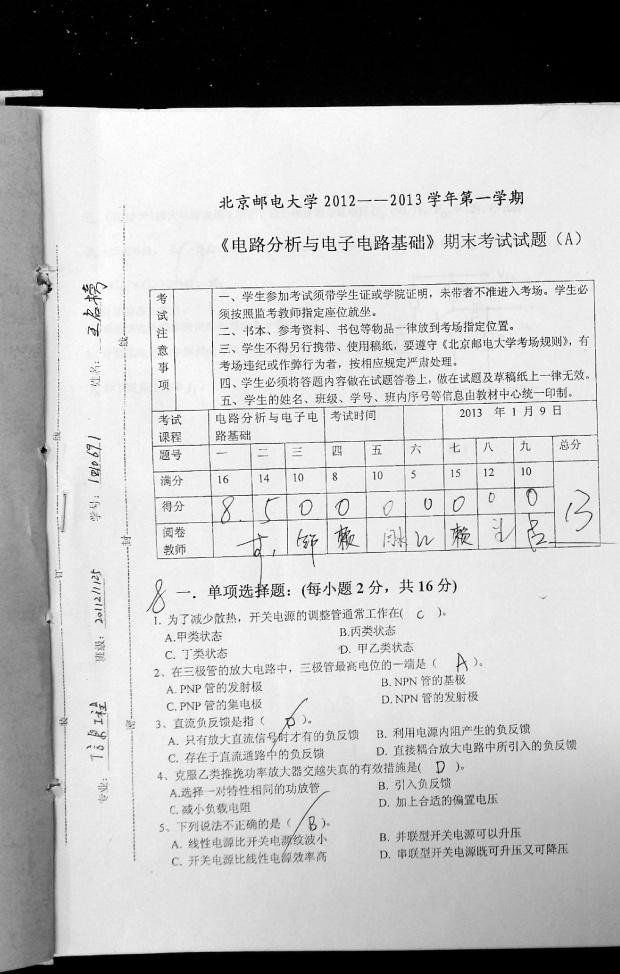 北京邮电大学 2012——2013 学年第一学期
《电路分析与电子电路基础》期末考试试题（A）
考试注意事项
一、学生参加考试须带学生证或学院证明，未带者不准进入考场。学生必
须按照监考教师指定座位就坐。
二、书本、参考资料、书包等物品一律放到考场指定位置。
三、学生不得另行携带、使用稿纸，要遵守《北京邮电大学考场规则》，有
考场违纪或作弊行为者，按相应规定严肃处理。
四、学生必须将答题内容做在试题答卷上，做在试题及草稿纸上一律无效。
五、学生的姓名、班级、学号、班内序号等信息由教材中心统一印制。
考试课程 电路分析与电子电路基础 考试时间 2013 年 1 月 9 日
题号 一 二 三 四 五 六 七 八 九 总分
满分 16 14 10 8 10 5 15 12 10
得分 8. 5 0 0 0 0 0 0 0 13
阅卷教师 赖 赖
8 一．单项选择题：(每小题 2 分，共 16 分)
1. 为了减少散热，开关电源的调整管通常工作在( C )。
A.甲类状态 B.丙类状态
C. 丁类状态 D. 甲乙类状态
2、在三极管的放大电路中，三极管最高电位的一端是（ A ）。
A. PNP 管的发射极 B. NPN 管的基极
C. PNP 管的集电极 D. NPN 管的发射极
3、直流负反馈是指（ D ）。
A. 只有放大直流信号时才有的负反馈 B. 利用电源内阻产生的负反馈
C. 存在于直流通路中的负反馈 D. 直接耦合放大电路中所引入的负反馈
4、克服乙类推挽功率放大器交越失真的有效措施是( D )。
A.选择一对特性相同的功放管 B. 引入负反馈
C. 减小负载电阻 D. 加上合适的偏置电压
5、下列说法不正确的是（ B ）。
A. 线性电源比开关电源纹波小 B. 并联型开关电源可以升压
C. 开关电源比线性电源效率高 D. 串联型开关电源既可升压又可降压
姓名：
学号：
班级： 2011211125
专业：
线
封
密
线
订
装